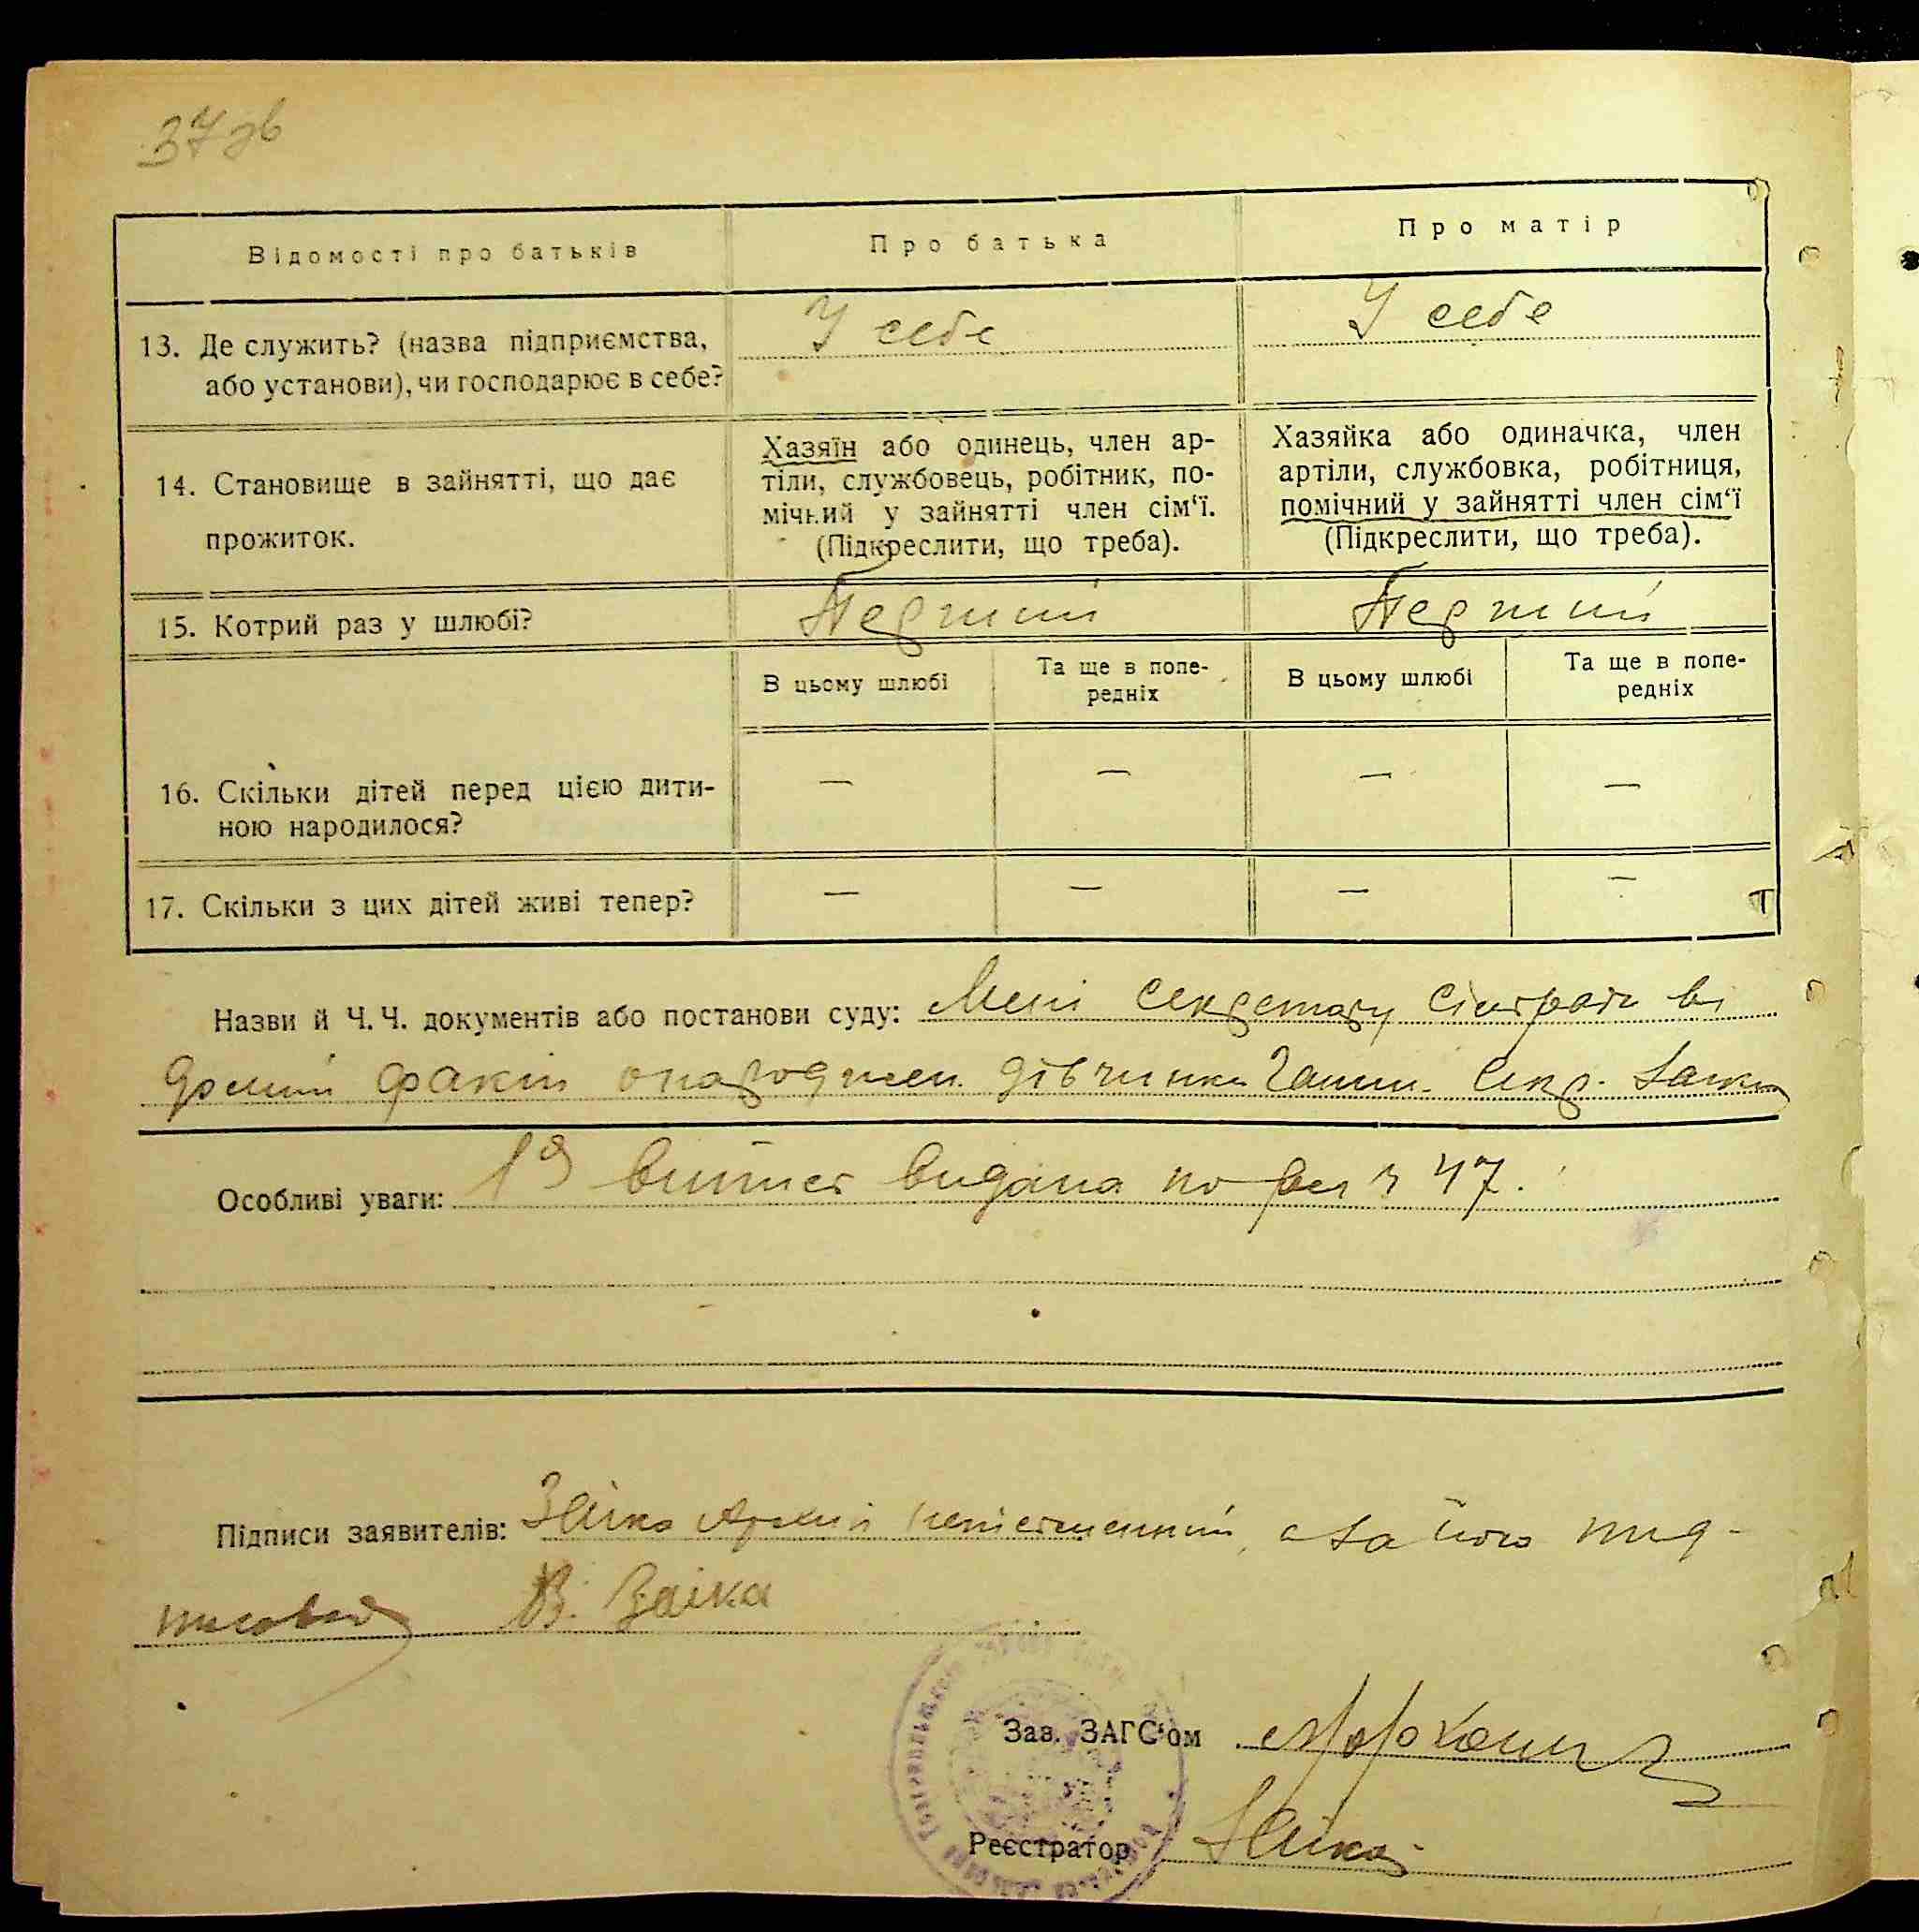 37 зв
Відомості про батьків
Про батька
Про матір
13. Де служить? (назва підприємства,
або установи), чи господарює в себе?
У себе
У себе
14. Становище в зайнятті, що дає
прожиток.
Хазяїн або одинець, член ар-
тіли, службовець, робітник, по-
мічний у зайнятті член сім‘ї.
(Підкреслити, що треба).
Хазяйка або одиначка, член
артіли, службовка, робітниця,
помічний у зайнятті член сім‘ї
(Підкреслити, що треба).
15. Котрий раз у шлюбі?
Перший
Перший
В цьому шлюбі
Та ще в попе-
редніх
В цьому шлюбі
Та ще в попе-
редніх
16. Скільки дітей перед цією дити-
ною народилося?
— — — —
17. Скільки з цих дітей живі тепер?
— — — —
Назви й Ч. Ч. документів або постанови суду: Мені секретару сільради ві
домий факт дівчинки Ганни. Секр. Заїка
Особливі уваги: видана по 47.
Підписи заявителів: Заїка неписьменний, а за його під-
писався В. Заїка
Зав. ЗАГС‘ом
Реєстратор Заїка